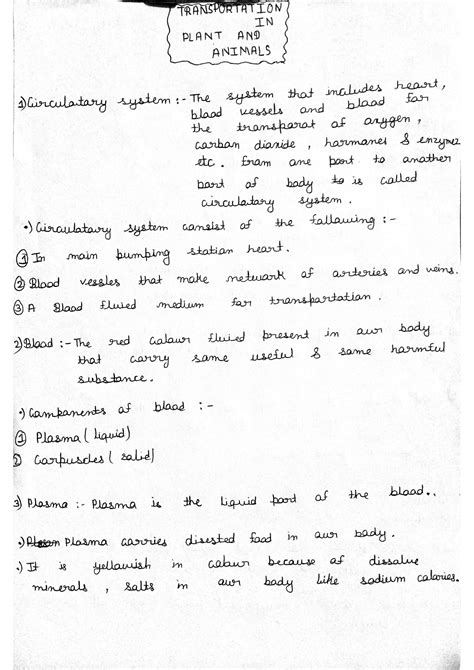 TRANSPORTATION
IN
PLANT AND
ANIMALS
1) Circulatary system :- The system that includes heart,
blood vessels and blood far
the transparat of oxygen,
carban diaxide, harmanes & enzymes
etc. fram ane part to another
part of body to is called
circulatary system.
•) Circulatary system cansist of the fallawing :-
① In main pumping statian heart.
② Blaad vessles that make netwark of arteries and veins.
③ A Blaad fluied medium far transpartatian.
2) Blaad :- The red calaur fluied present in aur bady
that carry same useful & same harmful
substance.
•) Campanents af blaad :-
① Plasma (liquid)
② Carpuscles (salid)
3) Plasma :- Plasma is the liquid part af the blaad..
•) Plasma carries disested faad in aur bady.
•) It is yellawish in calaur because af dissalve
minerals, salts in aur bady like sadium calaries.